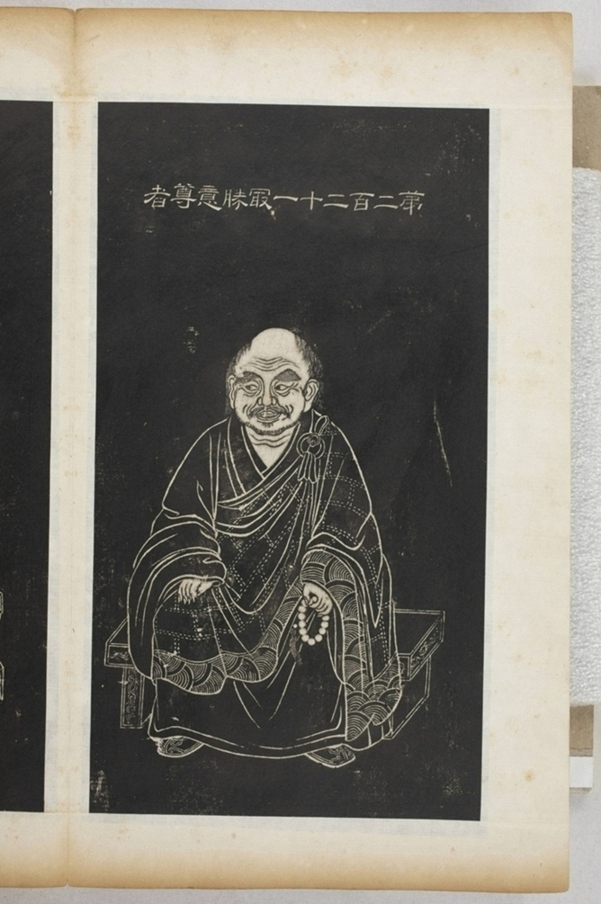 苐二百二十一㝡勝意尊者